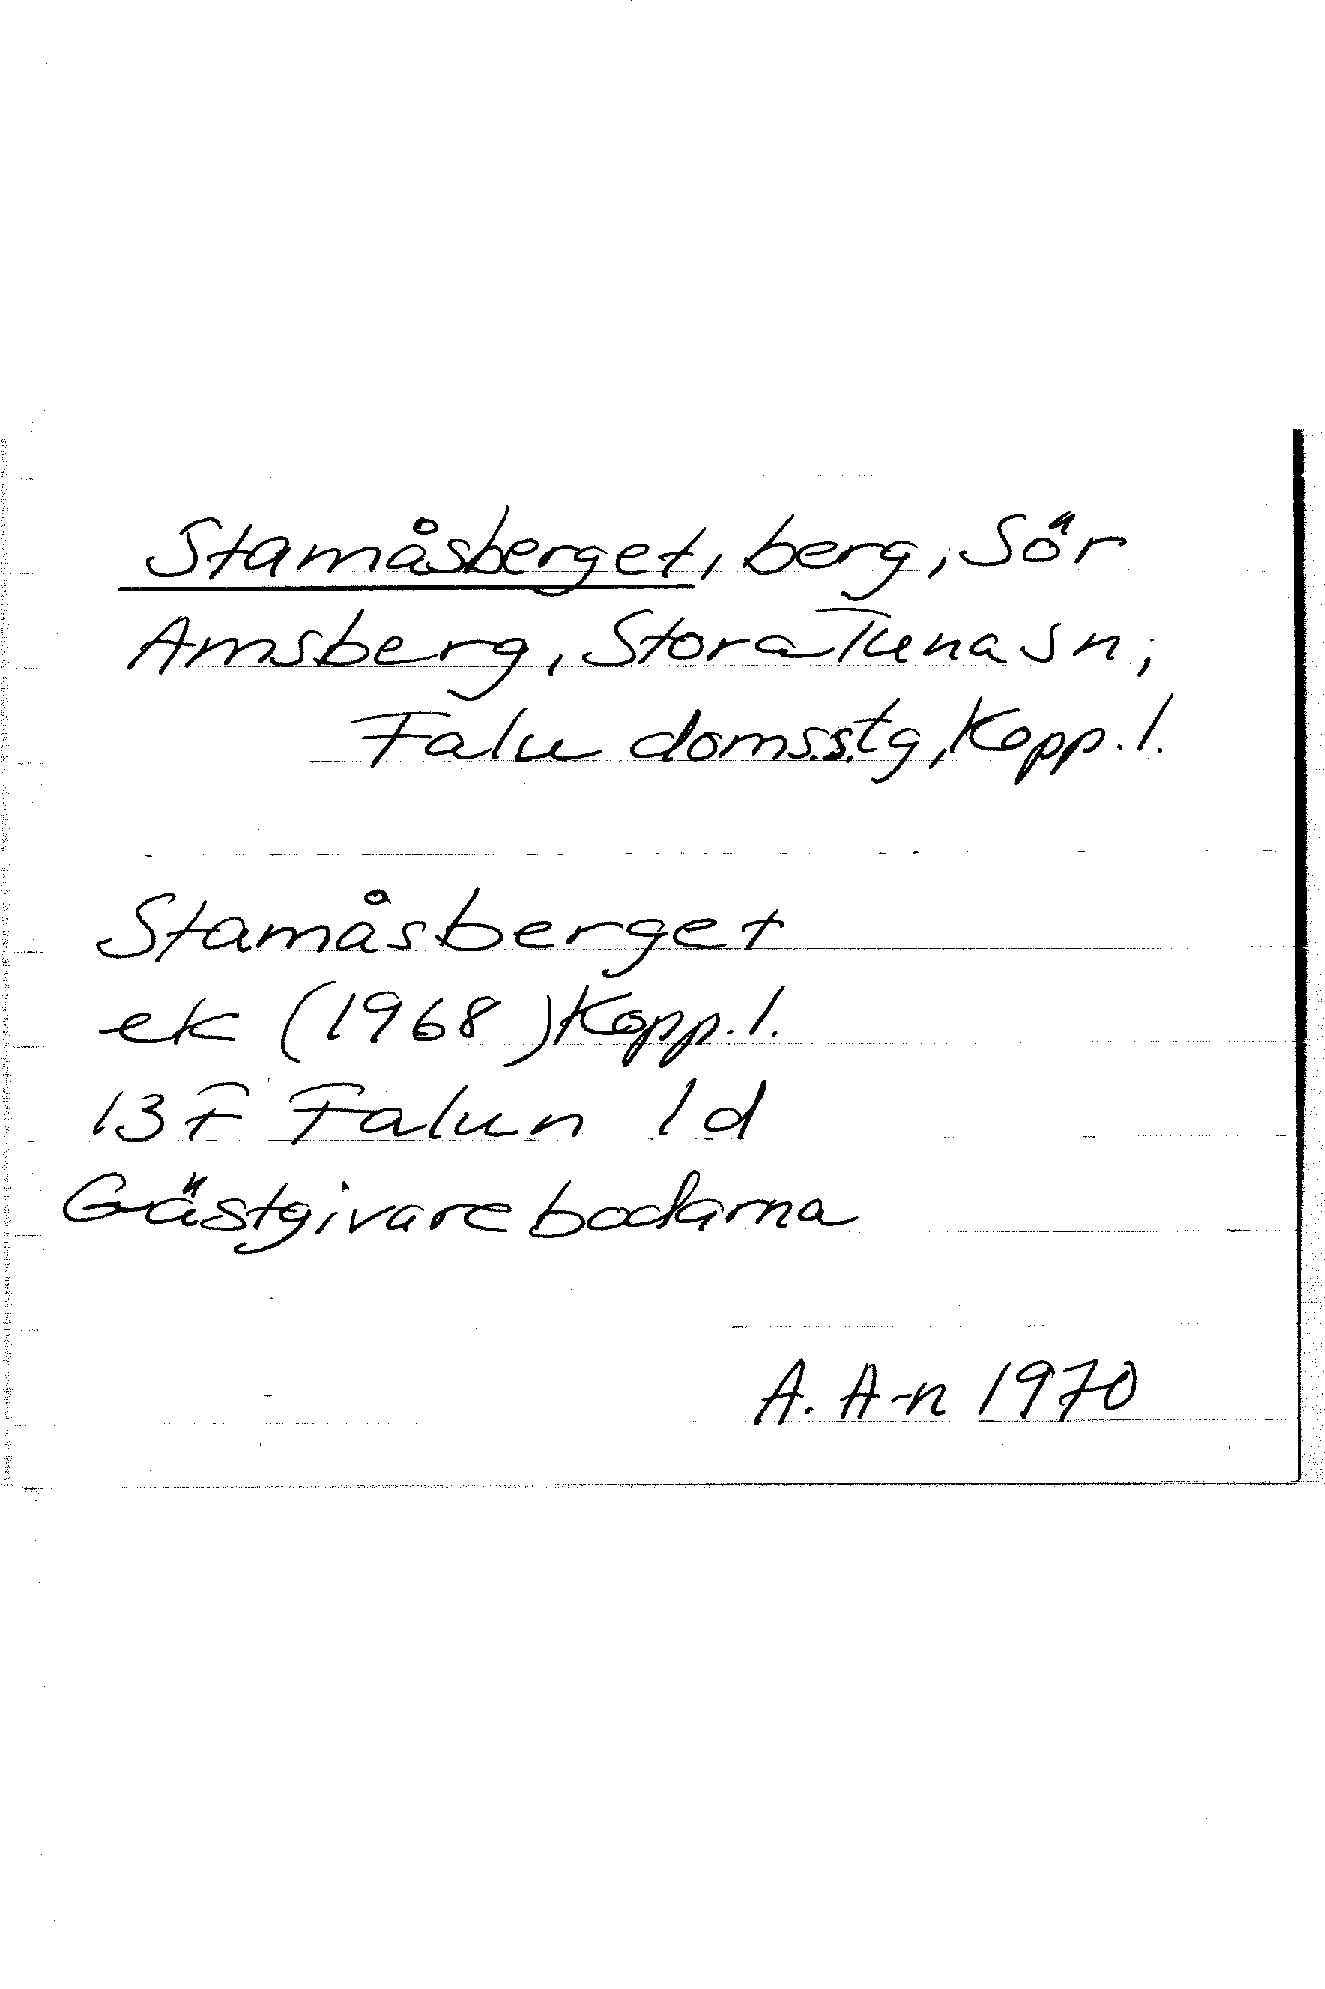 Stamåsberget, berg, Sör
Amsberg, Stora Tuna sn;
Falu doms.s.tg, Kopp. l.
Stamåsberget
ek (1968) Kopp. l.
13 F Falun 1 d
Gästgivarebodarna
A. A-n 1970